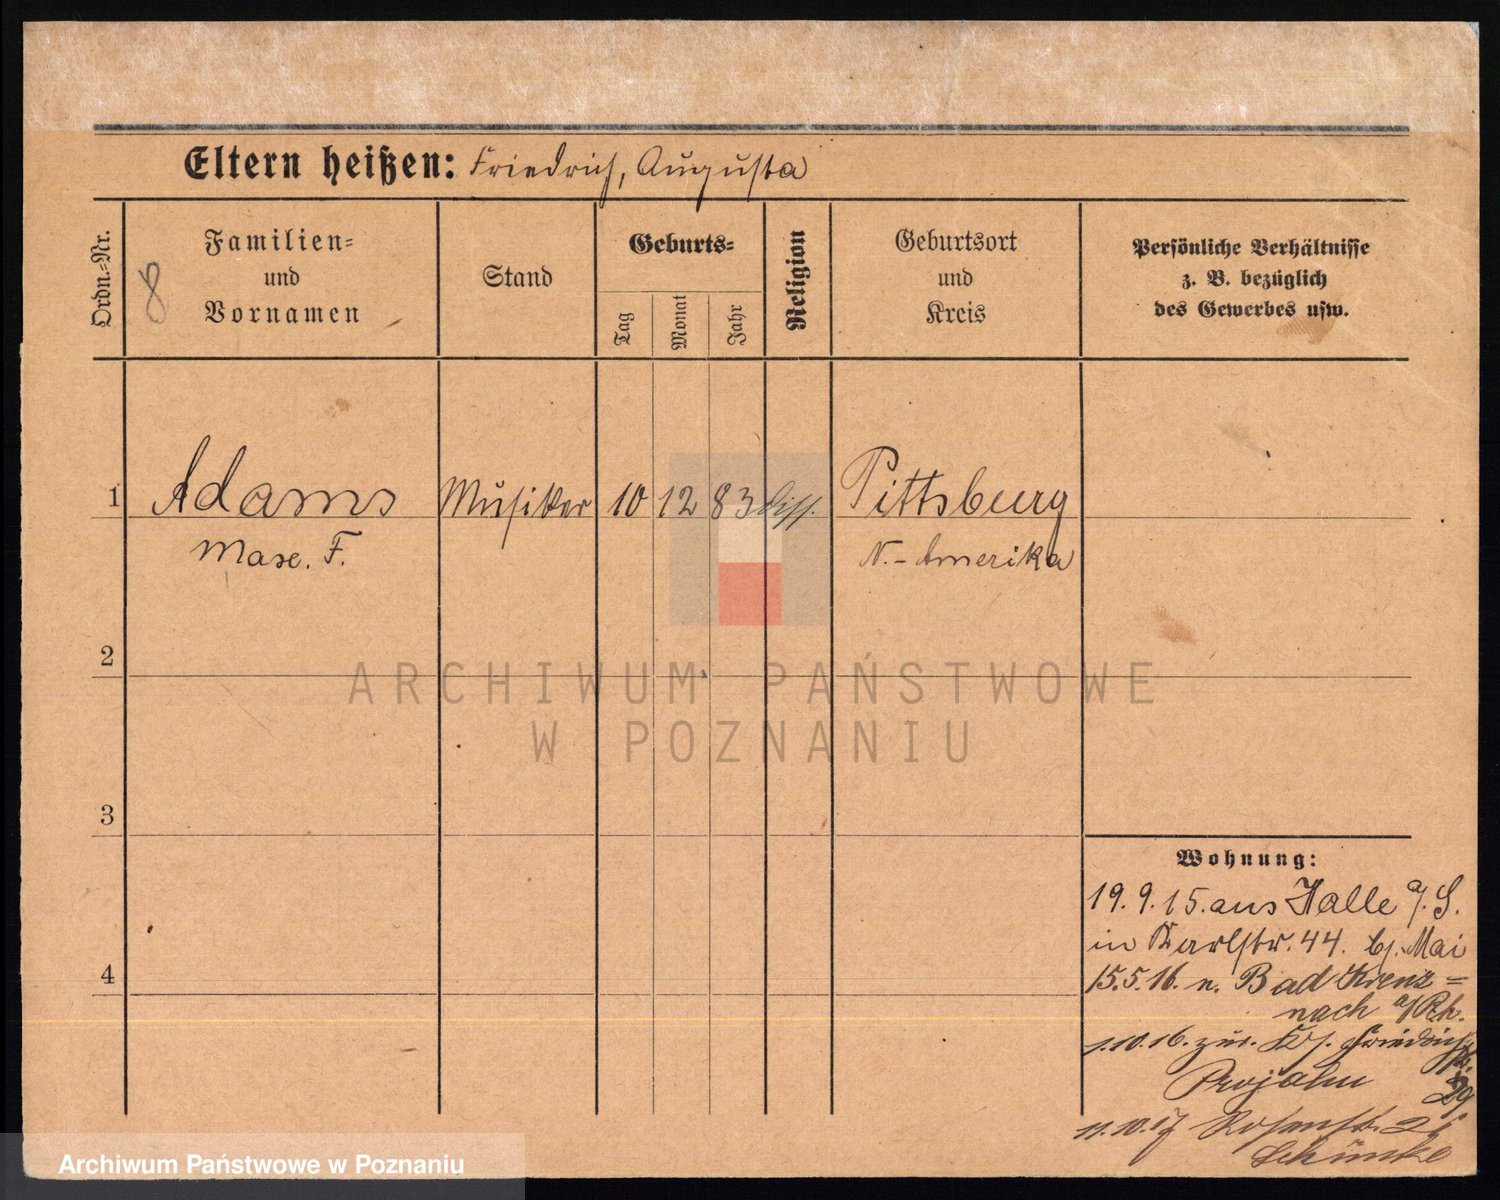 Eltern heißen: Friedrich, Augusta
Ordn.=Nr.
8
Familien=
und
Vornamen
Stand
Geburts=
Tag
Monat
Jahr
Religion
Geburtsort
und
Kreis
Persönliche Verhältnisse
z. B. bezüglich
des Gewerbes usw.
1 Adams Musiker 10 12 83 diss. Pittsburg
Max. F. N.- Amerika
2
ARCHIWUM PAŃSTWOWE
W POZNANIU
3
Wohnung:
19. 9. 15. aus Halle a/. S.
in Karlstr. 44. b/. Mai
4
15. 5. 16. n. Bad Kreuz=
nach a/Rh.
1. 10. 16. zur. Friedrichstr. 29
11. 10. 17
Archiwum Państwowe w Poznaniu